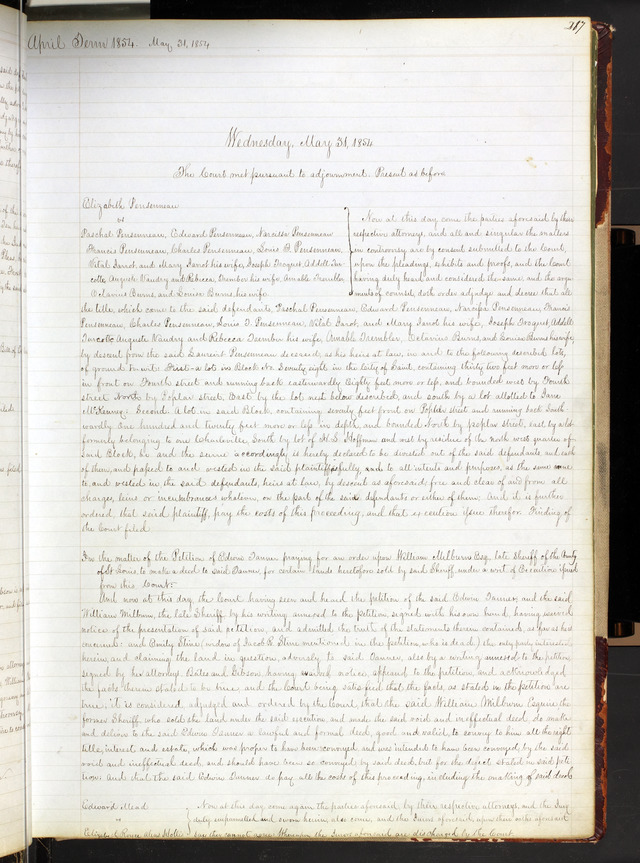 217
April Term 1854. May 31, 1854
Wednesday, May 31, 1854
The Court met pursuant to adjournment. Present as before
Elizabeth Pensenneau
vs
Paschal Pensenneau, Edward Pensenneau, Narcisse Pensenneau
Francis Pensenneau, Charles Pensenneau, Louis D. Pensenneau,
Vital Jarrot, and Mary Jarrot his wife, Joseph Troquet, Addell
cotte, Auguste Vaudry and Rebecca Trembor his wife, Amable Trembley
Octavius Burns, and Louisa Burns, his wife
Now at this day come the parties aforesaid by their
respective attorneys, and all and singular the matters
in controversy are by consent submitted to the Court,
upon the pleadings, exhibits and proofs, and the Court
having duly heard and considered the same, and the argu
ments of counsel, doth order adjudge and decree that all
the title, which came to the said defendants, Paschal Pensenneau, Edward Pensenneau, Narcisse Pensenneau, Francis
Pensenneau, Charles Pensenneau, Louis D. Pensenneau, Vital Jarrot, and Mary Jarrot his wife, Joseph Troquet, Addell
Turcotte, Auguste Vaudry and Rebecca Trembor his wife, Amable Trembler, Octavius Burns, and Louisa Burns his wife
by descent from the said Laurent Pensenneau deceased, as his heirs at law, in and to the following described lots,
of ground to wit: First a lot in Block No. Seventy eight, in the City of Saint, containing thirty two feet more or less
in front on Fourth street and running back eastwardly Eighty feet more or less, and bounded west by Fourth
street North by Poplar street, East by the lot next below described, and south by a lot allotted to Jane
McKenney. Second. A lot in said Block containing seventy feet front on Poplar street and running back South
wardly One hundred and twenty feet more or less in depth, and bounded North by poplar street, east by a lot
formerly belonging to one Whorleville, South by lot of H. L. Hoffman and west by residue of the north west quarter of
said Block, be and the same is accordingly is hereby declared to be divested out of the said defendants, and each
of them, and passed to and vested in the said plaintiff fully, and to all intents and purposes, as the same came
to, and vested in the said defendants, heirs at law, by descent as aforesaid, free and clear of and from all
charges, liens or incumbrances whatever, on the part of the said defendants or either of them; And it is further
ordered, that said plaintiff, pay the costs of this proceeding, and that execution issue therefor. Finding of
the Court filed
In the matter of the Petition of Edwin Tanner praying for an order upon William Milburn Esq late Sheriff of the County
of St Louis to make a deed to said Tanner, for certain lands heretofore sold by said Sheriff, under a writ of Execution issued
from this Court.
And now at this day, the Court having seen and heard the petition of the said Edwin Tanner, and the said
William Milburn, the late Sheriff, by his writing annexed to the petition, signed with his own hand, having waived
notice of the presentation of said petition, and admitted the truth of the statements therein contained, as far as he is
concerned: and Emily Eline (widow of Jacob C. Eline mentioned in the petition, who is dead) the only party interested
herein, and claiming the land in question, adversely to said Tanner, also by a writing annexed to the petition
signed by his attorneys, Bates and Gibson having waived notice, appeared to the petition, and acknowledged
the facts therein stated to be true, and the Court being satisfied that the facts, as stated in the petition are
true; it is considered, adjudged and ordered by the Court, that the said William Milburn Esquire the
former Sheriff, who sold the land under the said execution and made the said void and ineffectual deed, do make
and deliver to the said Edwin Tanner a lawful and formal deed, good and valid, to convey to him all the right
title, interest and estate, which was proper to have been conveyed and was intended to have been conveyed, by the said
void and ineffectual deed, and should have been so conveyed by said deed, but for the defect stated in said peti
tion; And that the said Edwin Tanner do pay all the costs of this proceeding, including the making of said deed
Edward Mead
vs
Elizabeth Rowe alias
Now at this day come again the parties aforesaid, by their respective attorneys, and the Jury
duly empannelled and sworn herein, also come, and the Jurors aforesaid upon their oaths aforesaid
say they cannot agree. Whereupon the Jurors aforesaid are discharged by the Court